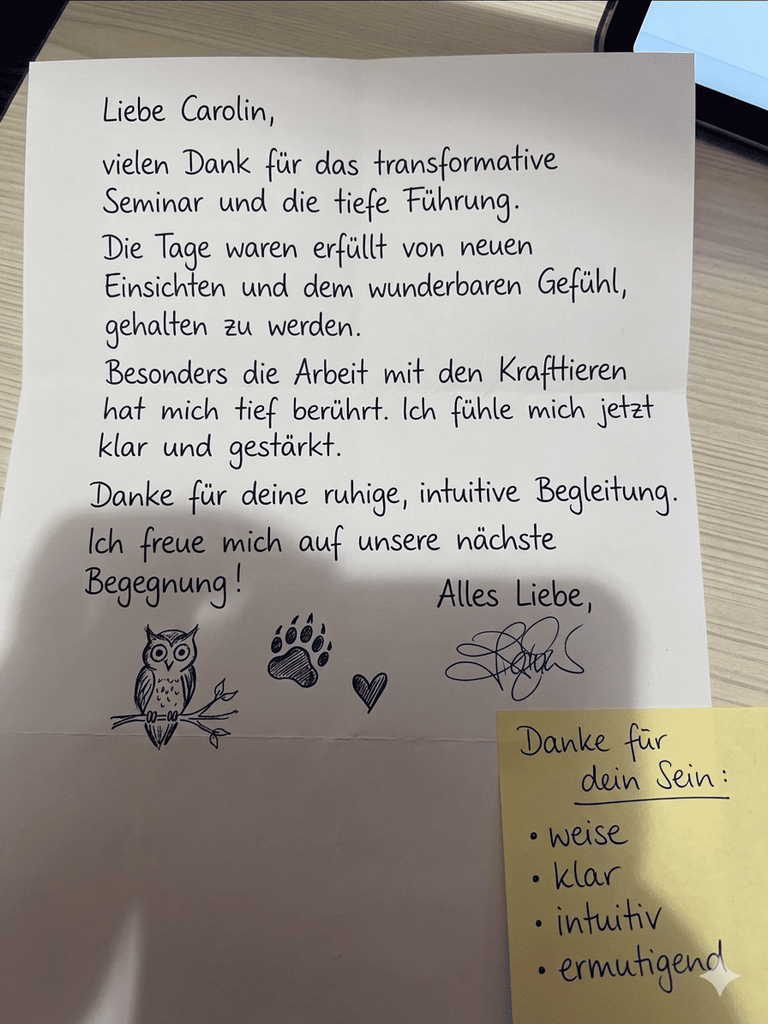 Liebe Carolin,
vielen Dank für das transformative
Seminar und die tiefe Führung.
Die Tage waren erfüllt von neuen
Einsichten und dem wunderbaren Gefühl,
gehalten zu werden.
Besonders die Arbeit mit den Krafttieren
hat mich tief berührt. Ich fühle mich jetzt
klar und gestärkt.
Danke für deine ruhige, intuitive Begleitung.
Ich freue mich auf unsere nächste
Begegnung!
Alles Liebe,
Danke für
dein Sein:
• weise
• klar
• intuitiv
• ermutigend